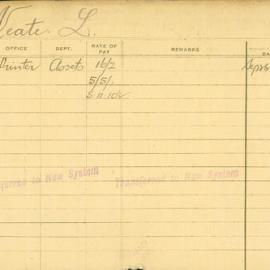 Neate L.
OFFICE DEPT. RATE OF PAY REMARKS DA
Printer Assets 16/2 Sep 26
5/5/.
5.11.10½
Transferred to New System Transferred to New System